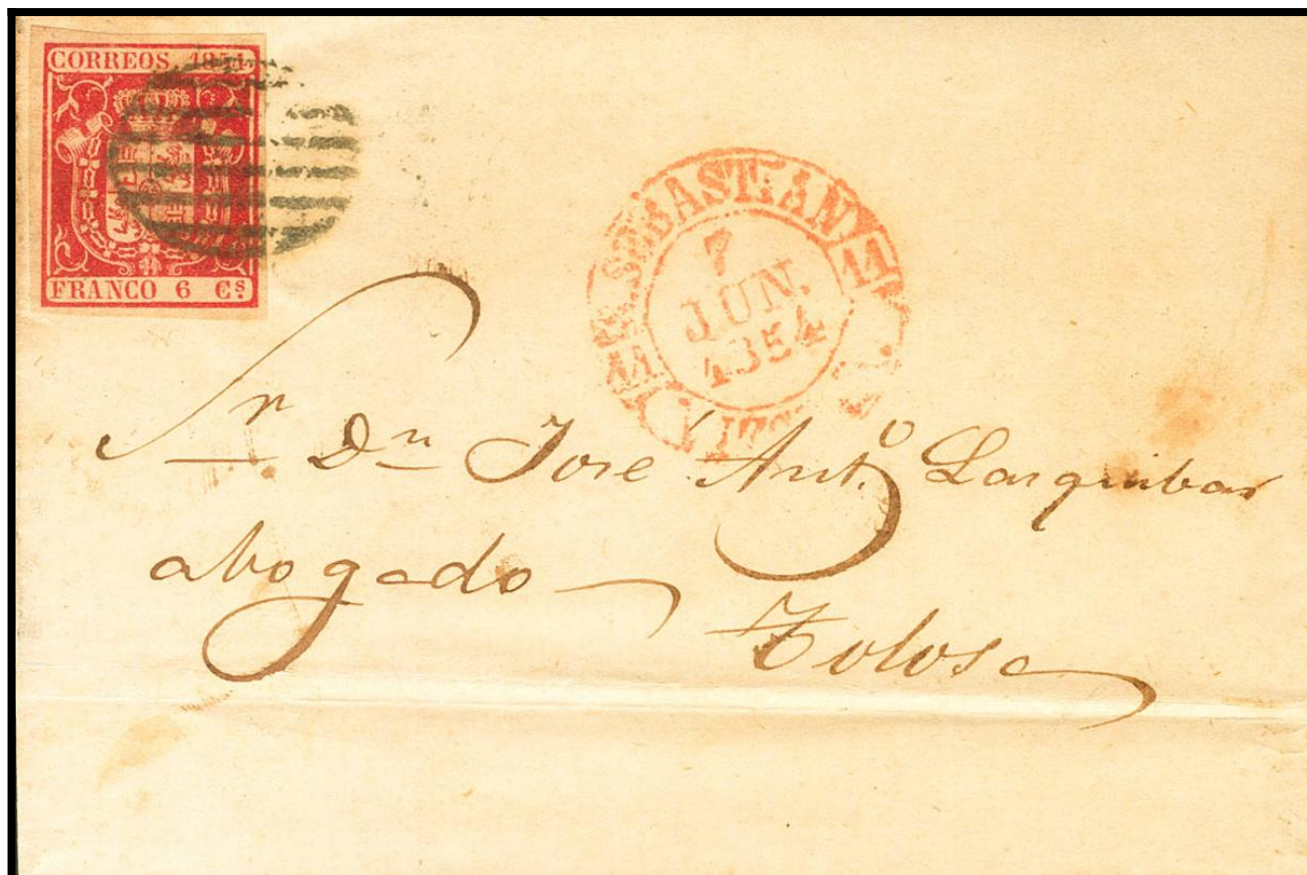 CORREOS. 1854.
FRANCO 6 Cs.
S. SEBASTIAN
11 11
7
JUN.
1854
Sr Dn José Anto. Larquibar
abogado
Tolosa